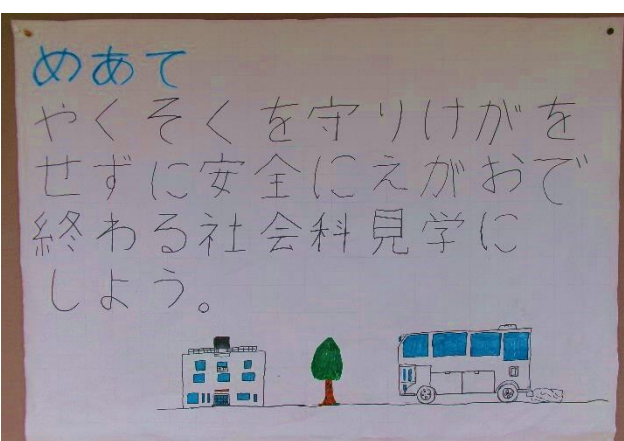 めあて
やくそくを守りけがを
せずに安全にえがおで
終わる社会科見学に
しよう。